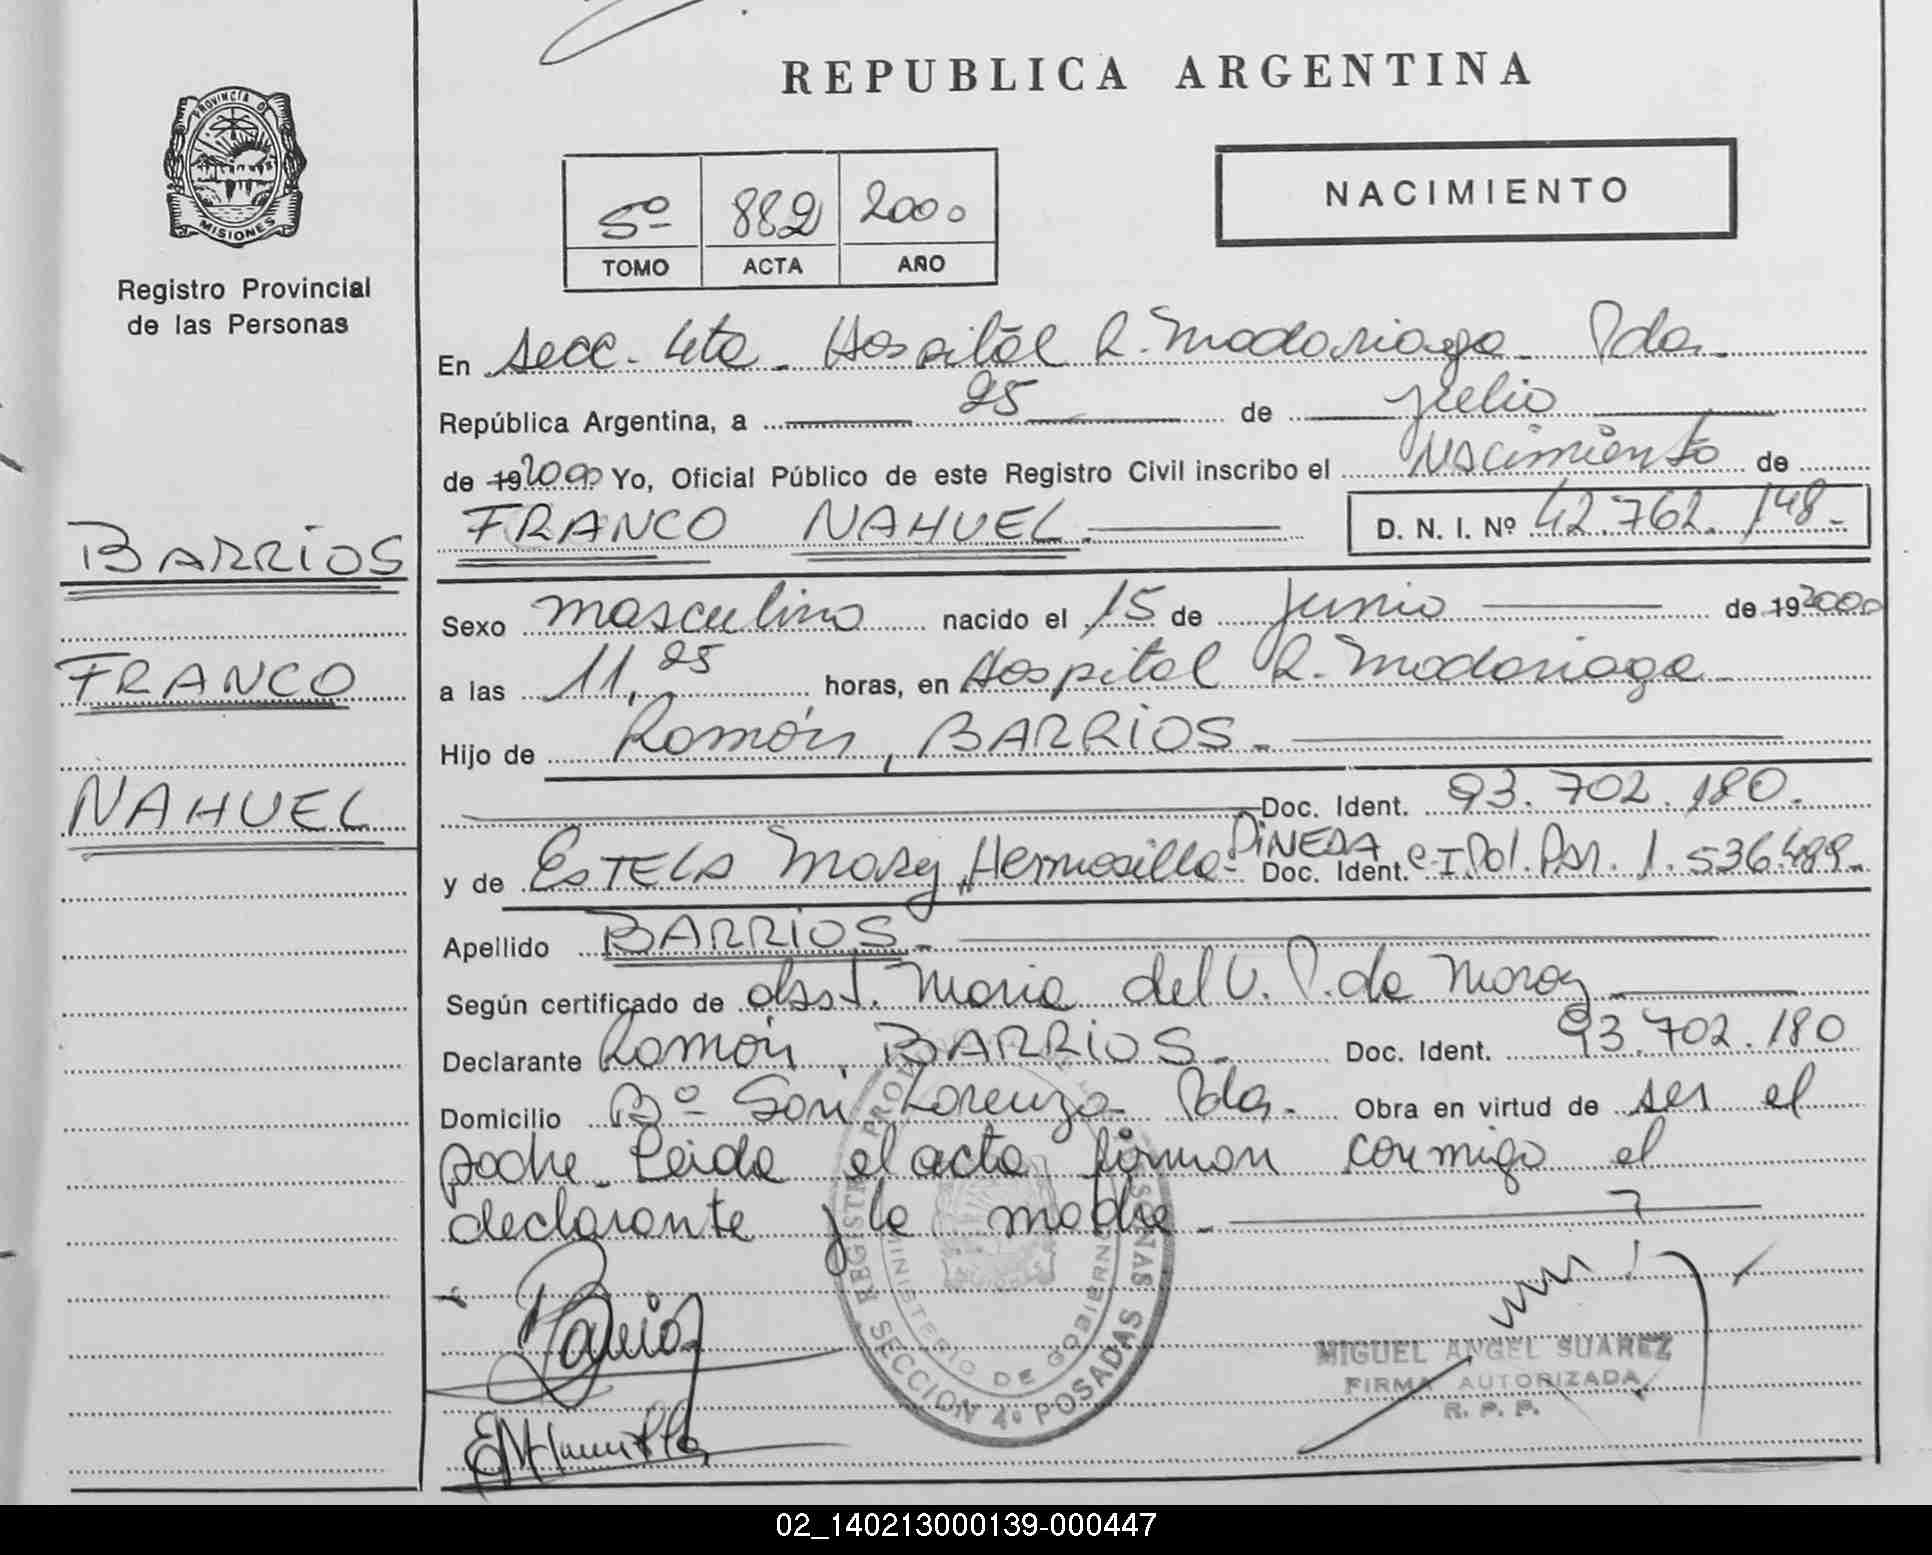 REPUBLICA ARGENTINA
PROVINCIA D
MISIONES
Registro Provincial
de las Personas
5º 882 2000
TOMO ACTA AÑO
NACIMIENTO
En Secc. 4ta. Hospital R. Madariaga. Pdas.
República Argentina, a 25 de julio
de 19 2000 Yo, Oficial Público de este Registro Civil inscribo el Nacimiento de
FRANCO NAHUEL. D. N. I. Nº 42.762.148.-
BARRIOS
FRANCO
NAHUEL
Sexo masculino nacido el 15 de junio de 19 2000
a las 11,25 horas, en Hospital R. Madariaga
Hijo de Ramón, BARRIOS.-
Doc. Ident. 93.702.180.
y de ESTELA Mary, Hermosilla PINEDA Doc. Ident. C.I. Pol. Par. 1.536.489.-
Apellido BARRIOS.-
Según certificado de obst. Maria del V. P. de Moray
Declarante Ramón, BARRIOS.- Doc. Ident. 93.702.180
Domicilio Bº San Lorenzo Pdas.- Obra en virtud de ser el
padre. Leida el acta firman conmigo el
declarante y la madre.-
REGISTR PROV SONAS
MINISTERIO DE GOBIERN
SECCION 4º POSADAS
MIGUEL ANGEL SUAREZ
FIRMA AUTORIZADA
R. P. P.
02_140213000139-000447